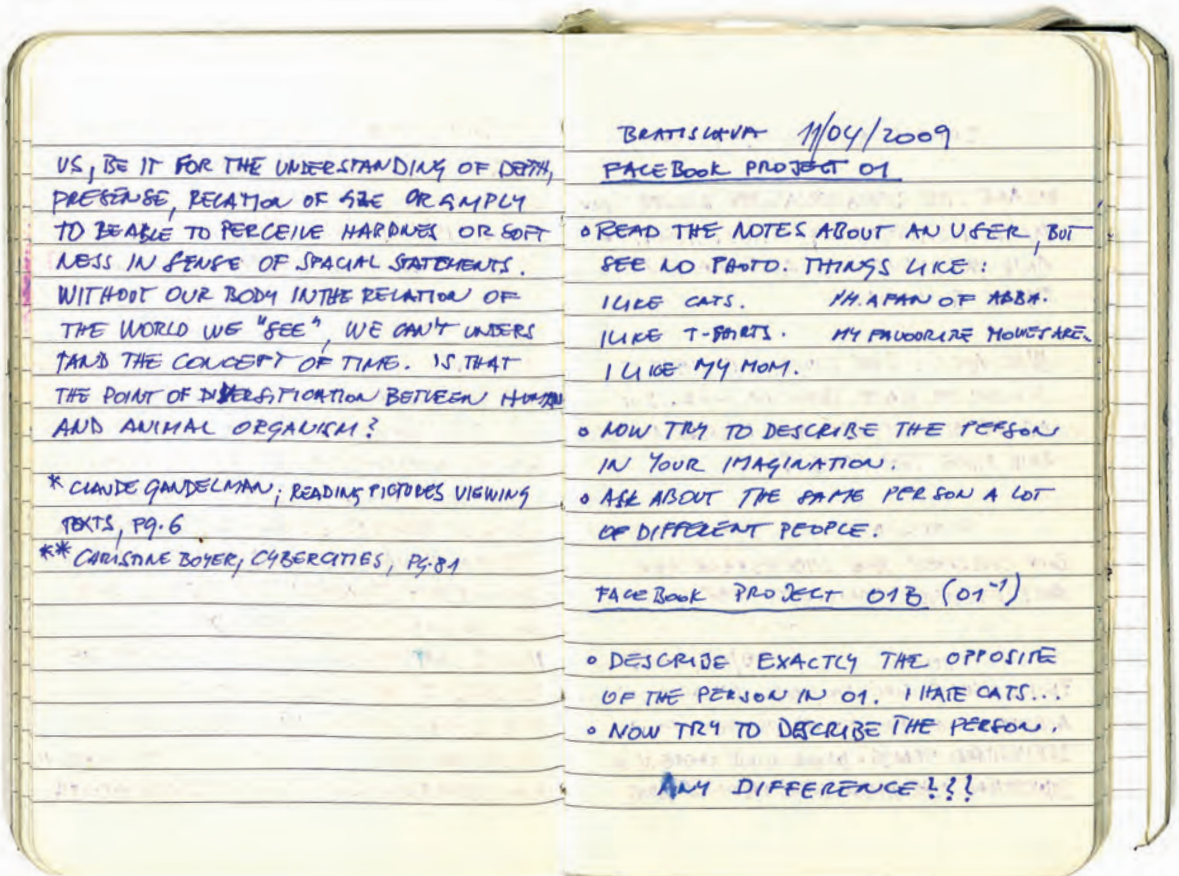 US, BE IT FOR THE UNDERSTANDING OF DEPTH,
PRESENSE, RELATION OF SIZE OR SIMPLY
TO BE ABLE TO PERCEIVE HARDNES OR SOFT
NESS IN SENSE OF SPACIAL STATEMENTS.
WITHOUT OUR BODY IN THE RELATION OF
THE WORLD WE "SEE", WE CAN'T UNDERS
TAND THE CONCEPT OF TIME. IS THAT
THE POINT OF DIVERSIFICATION BETWEEN HUMAN
AND ANIMAL ORGANISM?
* CLAUDE GANDELMAN; READING PICTURES VIEWING
TEXTS, PG. 6
** CHRISTINE BOYER, CYBERCITIES, PG. 81
BRATISLAVA 11/04/2009
FACEBOOK PROJECT 01
• READ THE NOTES ABOUT AN USER, BUT
SEE NO PHOTO. THINGS LIKE:
I LIKE CATS. I'M A FAN OF ABBA.
I LIKE T-SHIRTS. MY FAVOORITE MOVIES ARE.
I LIKE MY MOM.
• NOW TRY TO DESCRIBE THE PERSON
IN YOUR IMAGINATION.
• ASK ABOUT THE SAME PERSON A LOT
OF DIFFERENT PEOPLE.
FACEBOOK PROJECT 01B (01⁻¹)
• DESCRIBE EXACTLY THE OPPOSITE
OF THE PERSON IN 01. I HATE CATS...
• NOW TRY TO DESCRIBE THE PERSON.
ANY DIFFERENCE???